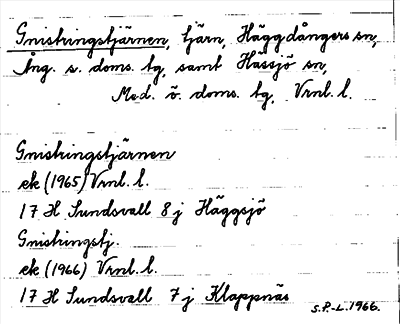 Gnistringstjärnen, tjärn, Häggdångers sn,
Ång. s. doms. tg, samt Hässjö sn,
Med. ö. doms. tg, Vrnl. l.
Gnistringstjärnen
ek (1965) Vrnl. l.
17 H Sundsvall 8 j Häggsjö
Gnistringstj.
ek (1966) Vrnl. l.
17 H Sundsvall 7 j Klappnäs
S.P.-L. 1966.